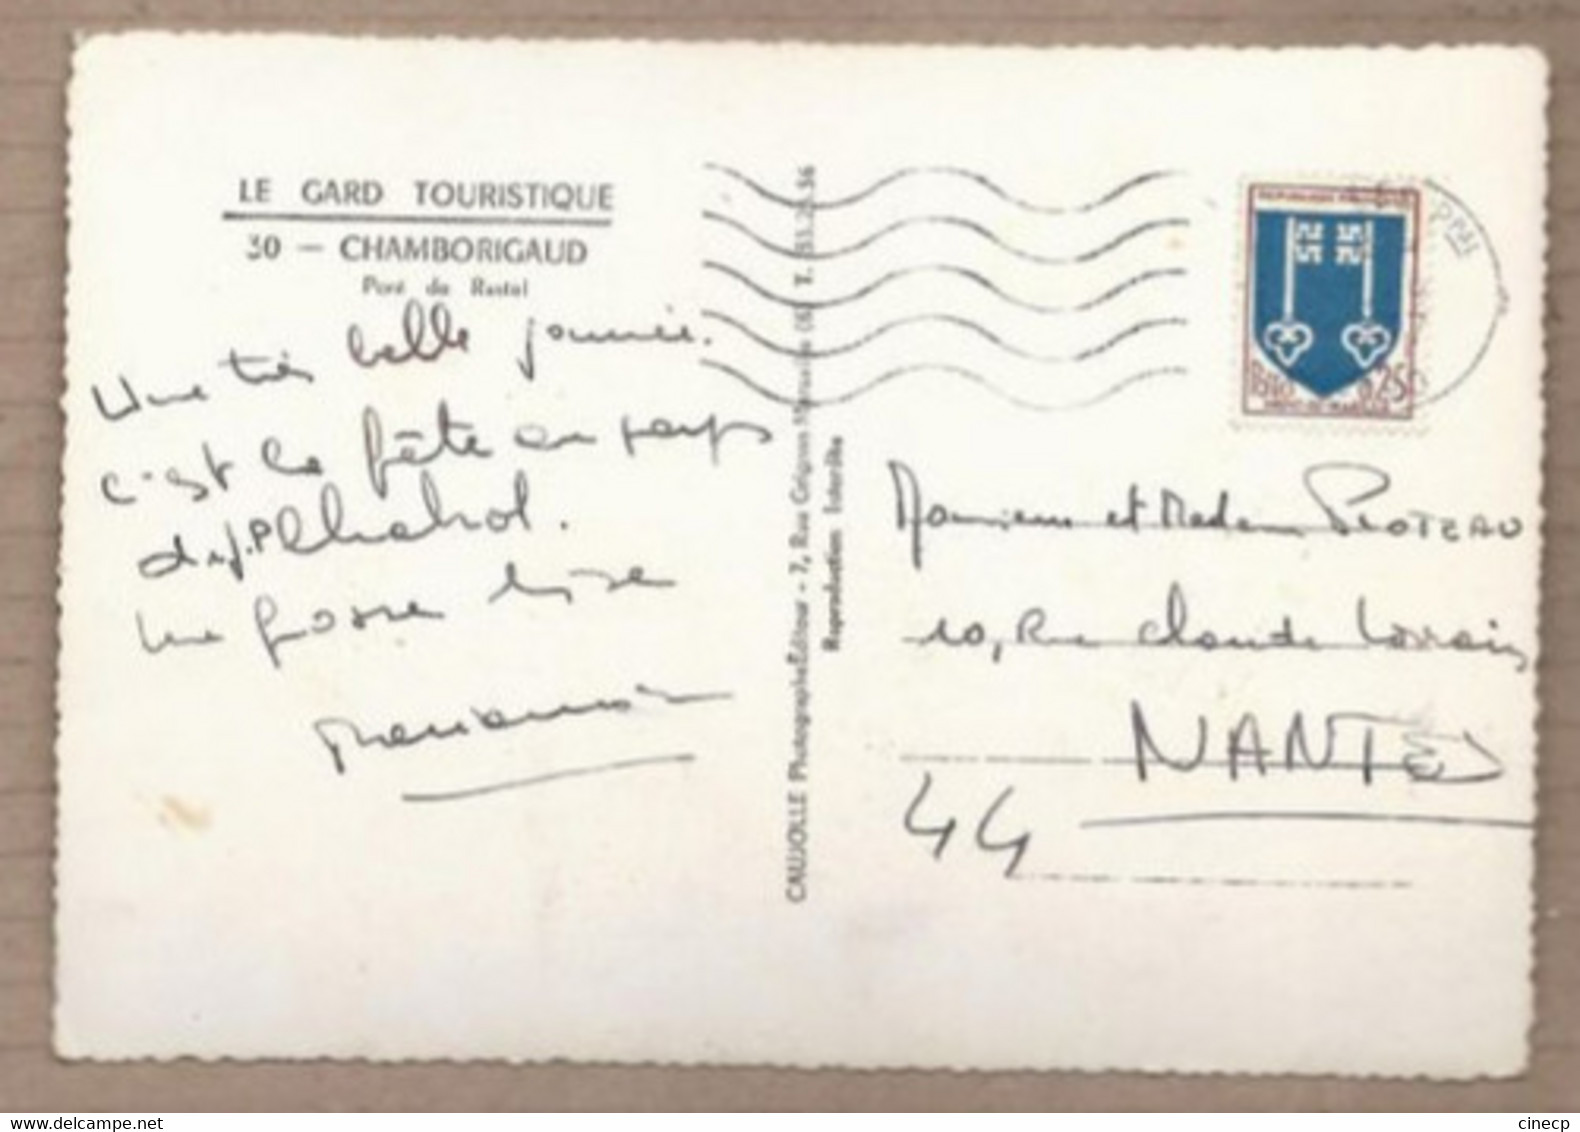 LE GARD TOURISTIQUE
30 — CHAMBORIGAUD
Pont de Rastel
Une très belle journée.
c'est la fête au pays
de J.P Chabrol.
Une grosse bise
CAUJOLLE Photographe Editeur - 7, Rue Grignan Marseille (6) T. 33.25.36
Reproduction Interdite
REPUBLIQUE FRANÇAISE
0,25
Monsieur et Madame PLOTEAU
10, Rue Claude Lorrain
NANTES
44
www.delcampe.net
cinecp